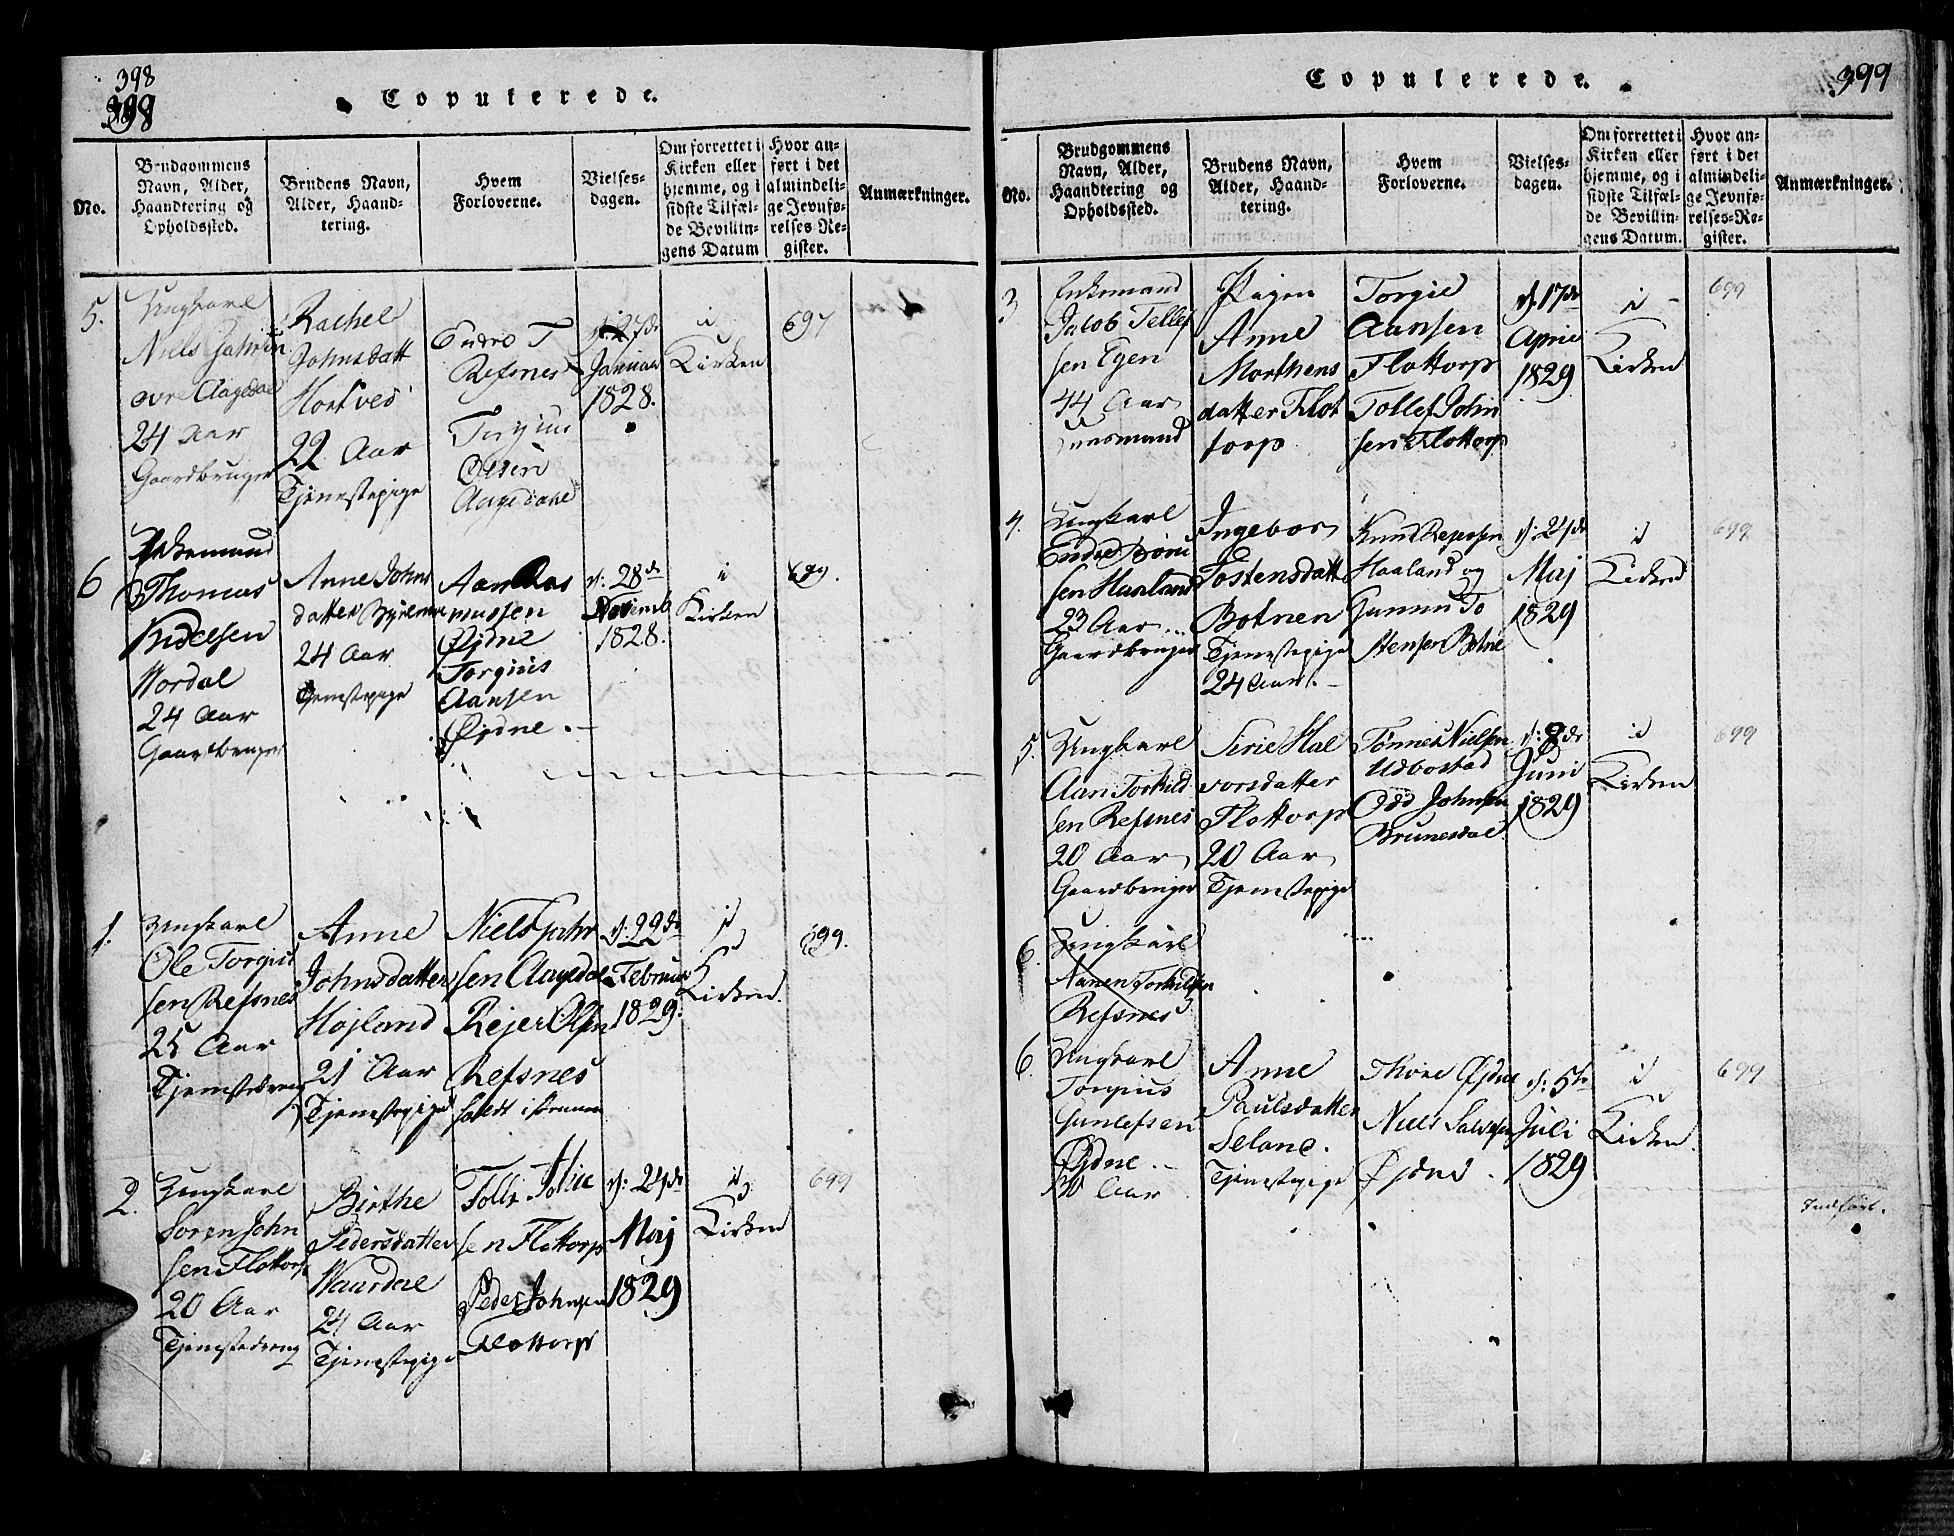 398
398
Copulerede.
No.
Brudgommens
Navn, Alder,
Haandtering og
Opholdssted.
Brudens Navn,
Alder, Haand-
tering.
Hvem
Forloverne.
Vielses-
dagen.
Om forrettet i
Kirken eller
hjemme, og i
sidste Tilfæl-
de Bevillin-
gens Datum
Hvor an-
ført i det
almindeli-
ge Jevnfø-
relses-Re-
gister.
Anmærkninger.
5.
Ungkarl
Niels
Aagedal
24 Aar
Gaardbruger
Rachel
Johnsdatt
Hortved
22 Aar
Tjenestepige
Endre T
Refsnes
Torgius
Olsen
Aagedahl
d: 27de
Januar
1828.
i
Kirken
697
6
Enkemand
Thomas
Wordal
24 Aar
Gaardbruger
Anne Johns
datter
24 Aar
Tjenestepige
Aan Ras
mussen
Øjdne
Torgius
Aansen
Øjdne.
d: 28de
Novemb
1828.
i
Kirken
699.
1.
Ungkarl
Ole Torgius
sen Refsnes
25 Aar
Tjenestedreng
Anne
Johnsdatter
Højland
21 Aar
Tjenestepige
Niels Jahn
sen Aagedal
Rejer Olsen
Refsnes
d: 22de
Februar
1829.
i
Kirken.
699.
2.
Ungkarl
Soren John
sen Flottorp
20 Aar
Tjenestedreng
Birthe
Pedersdatter
Waardal
24 Aar
Tjenestepige
Tolle
sen Flottorp
Peder Johnsen
Flottorp
d: 24de
Maj
1829
i
Kirken
699
Copulerede.
399
No.
Brudgommens
Navn, Alder,
Haandtering og
Opholdssted.
Brudens Navn,
Alder, Haand-
tering.
Hvem
Forloverne.
Vielses-
dagen.
Om forrettet i
Kirken eller
hjemme, og i
sidste Tilfæl-
de Bevillin-
gens Datum.
Hvor an-
ført i det
almindeli-
ge Jevnfø-
relses-Re-
gister.
Anmærkninger.
3
Enkemand
Jacob Tellef
sen Egen
44 Aar
Huusmand
Pigen
Anne
Morthens
datter Flot
torp
Torgie
Aansen
Flottorp
Tollef John
sen Flottorp
d: 17de
April
1829
i
Kirken
699
4.
Ungkarl
Endre Børe
sen Haaland
23 Aar
Gaardbruger
Ingebor
Tostensdatt
Botnen
Tjenestepige
24 Aar.
Knud Rejersen
Haaland og
Gunnu To
stensen Botne
d: 24de
Maj
1829
i
Kirken
699
5.
Ungkarl
Aan Torkild
sen Refsnes
20 Aar
Gaardbruger
Serie Hal
vorsdatter
Flottorp
20 Aar
Tjenestepige
Tønnes Nielsen
Udbostad
Odd Johnsen
Brunesdal
d: 8de
Juni
1829
i
Kirken
699
6.
Ungkarl
Aanen Torkildsen
Refsnes
6.
Ungkarl
Torgius
Gunlefsen
Øjdne
30 Aar
Anne
Paulsdatter
Seland.
Tjenestepige
Thore Øjdne
Niels Salvesen
Øjdne.
d: 5te
Juli
1829
i
Kirken.
699
Indført.